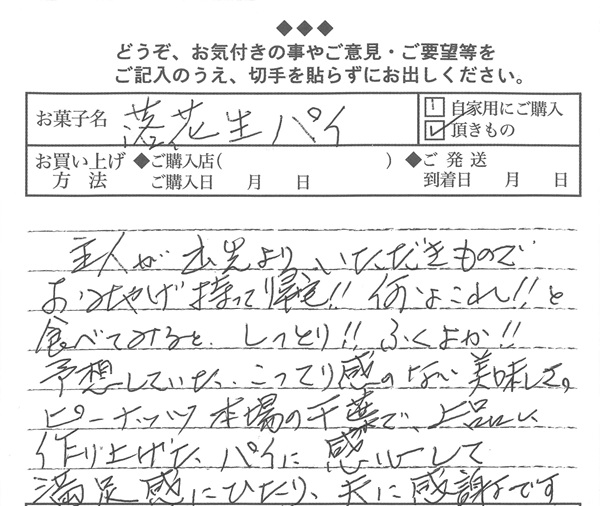 ◆◆◆
どうぞ、お気付きの事やご意見・ご要望等を
ご記入のうえ、切手を貼らずにお出しください。
お菓子名 落花生パイ □自家用にご購入
☑頂きもの
お買い上げ方法 ◆ご購入店( ) ◆ご発送
ご購入日 月 日 到着日 月 日
主人が出先より、いただきもので
おみやげ持って帰宅!! 何よこれ!!と
食べてみると、しっとり!! ふくよか!!
予想していた、こってり感のない美味しさ。
ピーナッツ本場の千葉で、上品に
作り上げた、パイに感心して
満足感にひたり、夫に感謝です